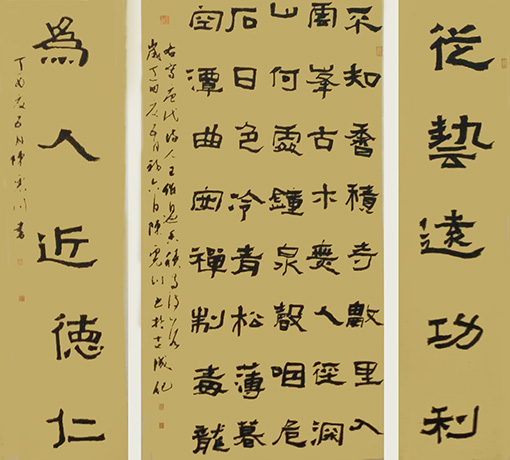 從藝遠功利
不知香積寺數里入
雲峯古木無人徑深
山何處鐘泉聲咽危
石日色冷青松薄暮
空潭曲安禪制毒龍
右寫唐代詩人王維過香積寺詩一首
歲丁酉夏五月初六日陳川書於古
為人近德仁
丁酉夏五月陳川書